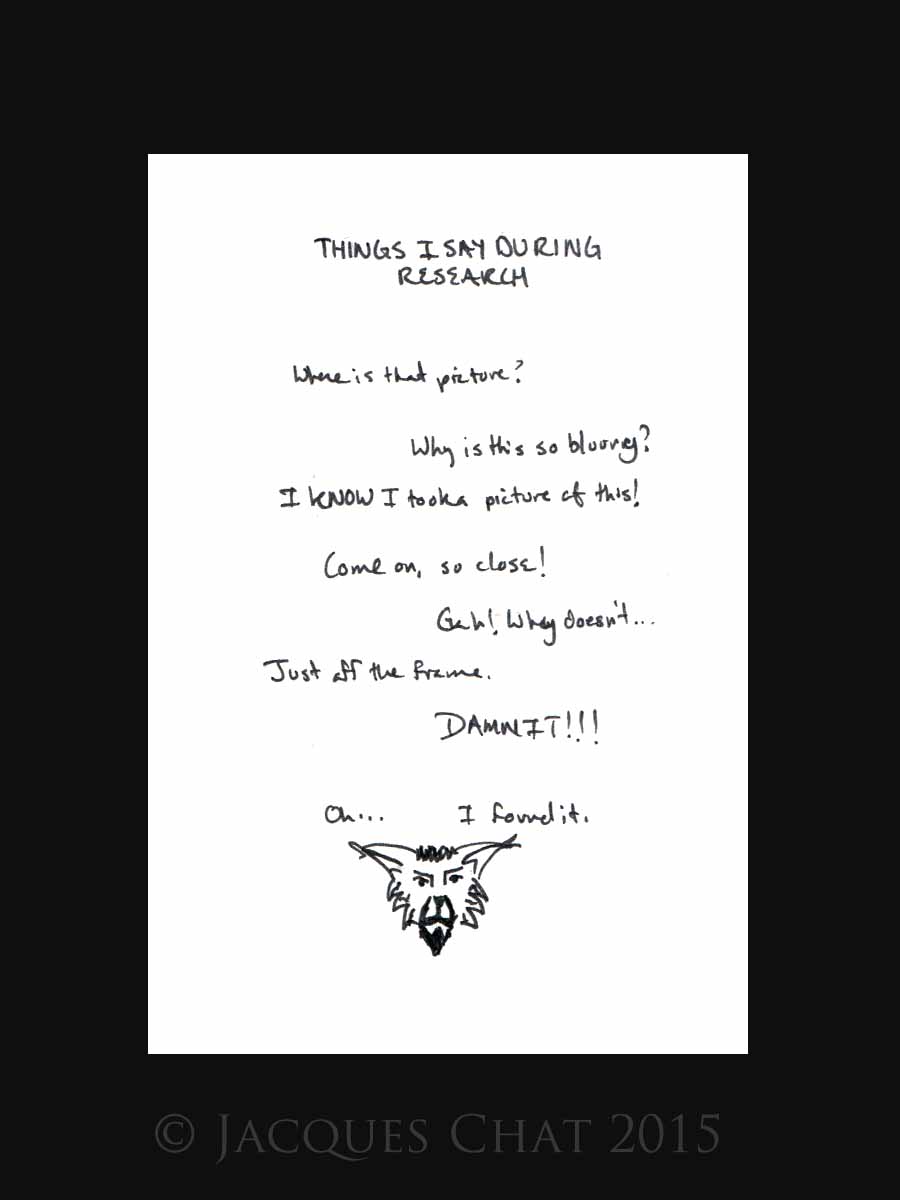 THINGS I SAY DURING
RESEARCH
Where is that picture?
Why is this so bluurey?
I KNOW I took a picture of this!
Come on, so close!
Gah! Why doesn't...
Just off the frame.
DAMNIT!!!
Oh... I found it.
© JACQUES CHAT 2015